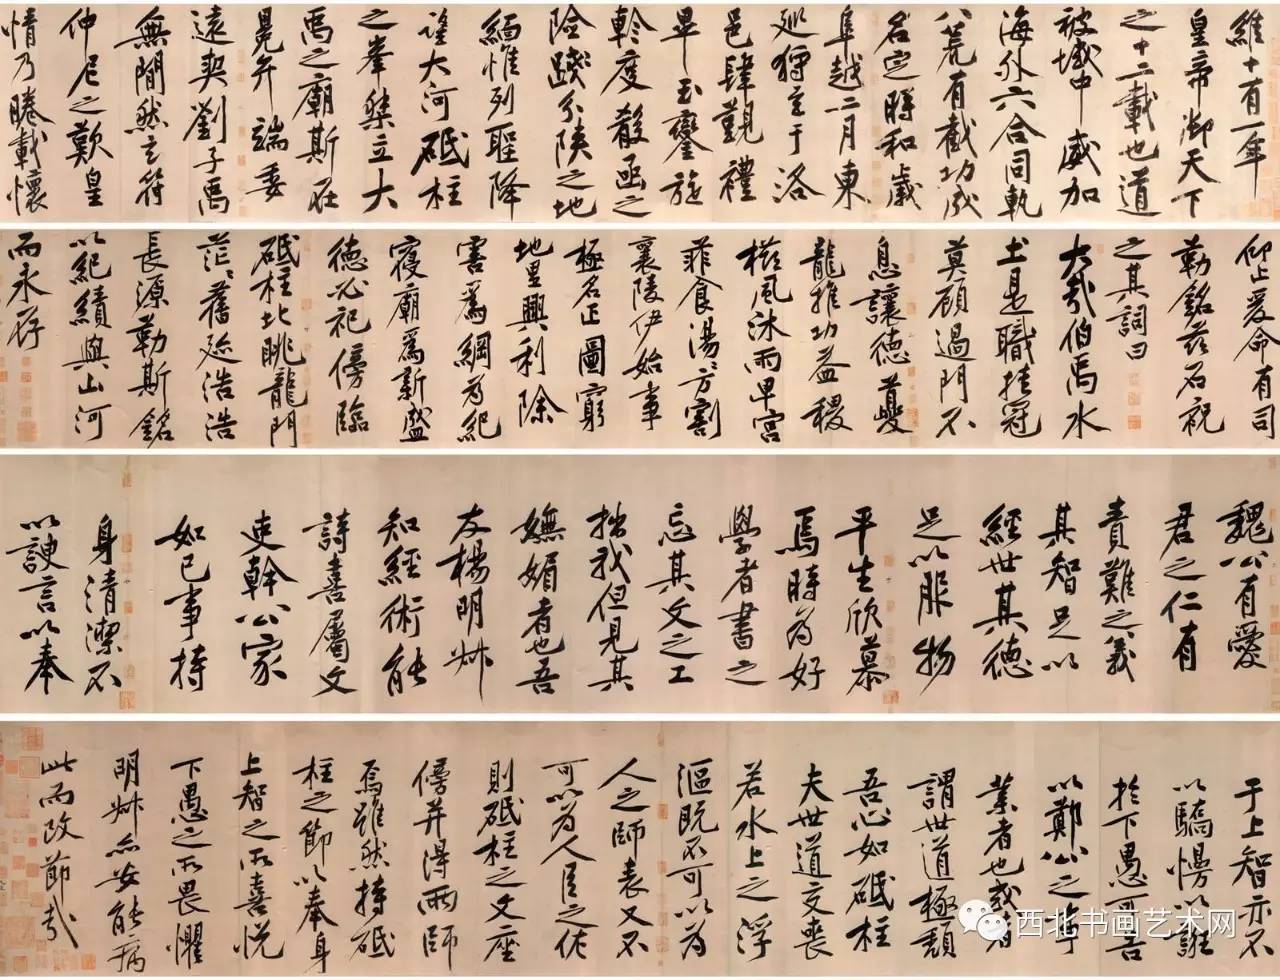 維十有一年
皇帝御天下
之十二載也道
被域中威加
海外六合同軌
八荒有截功成
名定時和歲
阜越二月東
巡狩至于洛
邑肆覲禮
畢玉鑾旋
軫度殽函之
險踐分陝之地
緬惟列聖降
望大河砥柱
之峯桀立大
禹之廟斯在
冕弁端委
遠契劉子禹
無閒然玄符
仲尼之歎皇
情乃睠載懷
仰止爰命有司
勒銘茲石祝
之其詞曰
大哉伯禹水
土是職挂冠
莫顧過門不
息讓德夔
龍推功益稷
櫛風沐雨卑宮
菲食湯湯方割
襄陵伊始事
極名正圖窮
地里興利除
害爲綱爲紀
寢廟爲新盛
德必祀傍臨
砥柱北眺龍門
茫茫舊跡浩浩
長源勒斯銘
以紀績與山河
而永存
魏公有愛
君之仁有
責難之義
其智足以
經世其德
足以服物
平生欣慕
焉時爲好
學者書之
忘其文之工
拙我但見其
嫵媚者也吾
友楊明叔
知經術能
詩喜屬文
吏幹公家
如己事持
身清潔不
以諛言以奉
于上智亦不
以驕慢以誑
於下愚可告
以鄭公之事
業者也或者
謂世道極頹
吾心如砥柱
夫世道交喪
若水上之浮
漚既不可以爲
人之師表又不
可以爲人臣之佐
則砥柱之文座
傍并得兩師
焉雖然持砥
柱之節以奉身
上智之所喜悅
下愚之所畏懼
明叔亦安能病
此而改節哉
西北书画艺术网